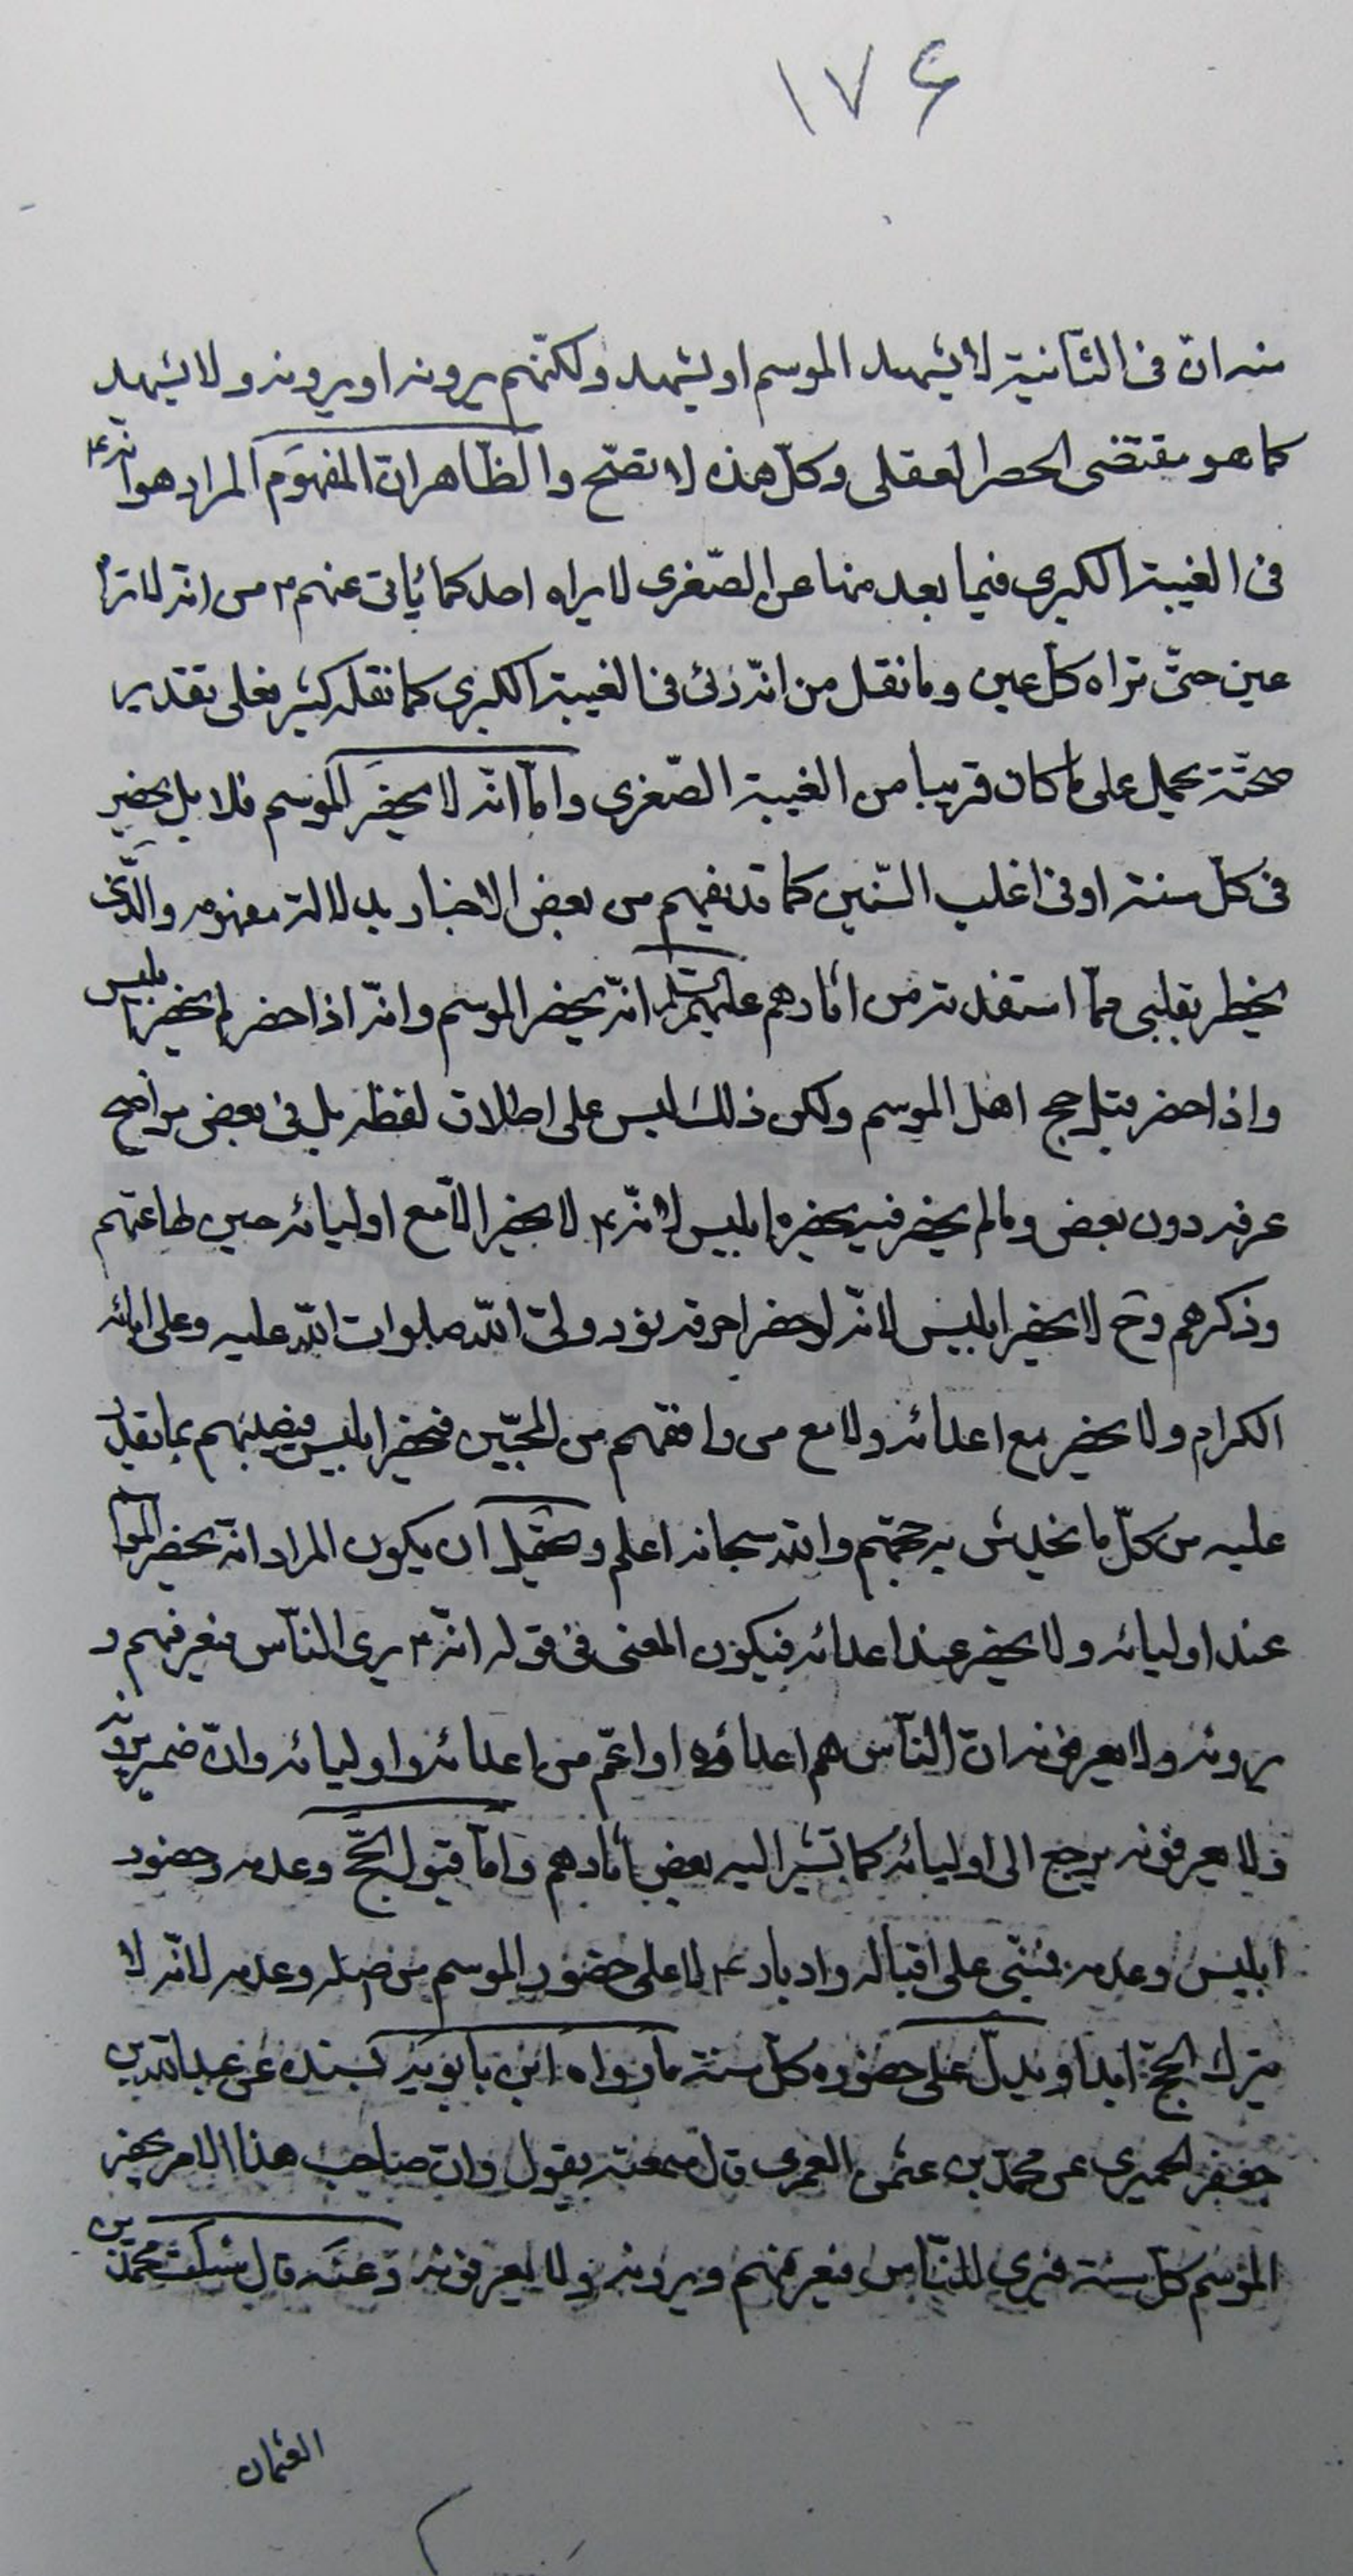 ١٧۶
منه ان فى الثّانية لا يشهد الموسم او يشهد ولكنّهم يرونه او يرونه ولا يشهد
كما هو مقتضى الحصر العقلى وكلّ هذه لا تصحّ والظّاهر انّ المفهوم المراد هو انّه ع
فى الغيبة الكبرى فيما بعد منها عن الصّغرى لا يراه احد كما يأتى عنهم ع من انّه لا تراه
عين حتّى تراه كلّ عين وما نقل من انّه رئى فى الغيبة الكبرى كما نقله كثير فعلى تقدير
صحّته يحمل على ما كان قريبا من الغيبة الصّغرى وامّا انّه لا يحضر الموسم فلا بل يحضر
فى كلّ سنة او فى اغلب السّنين كما قد يفهم من بعض الاخبار بدلالة مفهومه والّذى
يخطر بقلبى ممّا استفدته من اثارهم عليهم السلم انّه يحضر الموسم وانّه اذا حضر لم يحضر ابليس
واذا حضر قبل حج اهل الموسم ولكن ذلك ليس على اطلاق لفظه بل فى بعض مواضع
عرفه دون بعض وما لم يحضر فيه يحضره ابليس لانّه ع لا يحضر الّا مع اوليائه حين طاعتهم
وذكرهم وح لا يحضر ابليس لانّه لو حضر احرقه نور ولىّ اللّه صلوات اللّه عليه وعلى ابائه
الكرام ولا يحضر مع اعدائه ولا مع من وافقهم من المحبّين فيحضر ابليس فيضلّهم بما يقدر
عليه من كلّ ما يخدش به حجهم واللّه سبحانه اعلم ويحتمل ان يكون المراد انّه يحضر الموا
عند اوليائه ولا يحضر عند اعدائه فيكون المعنى فى قوله انّه ع يرى النّاس فيعرفهم و
يرونه ولا يعرفونه انّ النّاس هم اعداؤه او اعمّ من اعدائه واوليائه وانّ ضمير يرونه
ولا يعرفونه يرجع الى اوليائه كما تشير اليه بعض اثارهم وامّا قبول الحجّ وعدمه وحضور
ابليس وعدمه فمبنىّ على اقباله وادباره ع لا على حضور الموسم من اصله وعدمه لانّه لا
يترك الحجّ ابدا ويدلّ على حضوره كلّ سنة ما رواه ابن بابويه بسنده عن عبد اللّه بن
جعفر الحميرى عن محمّد بن عثمن العمرى قال سمعته يقول وان صاحب هذا الامر يحضر
الموسم كلّ سنة فيرى النّاس فيعرفهم ويرونه ولا يعرفونه وعنه قال سئلت محمّد بن
العثمان